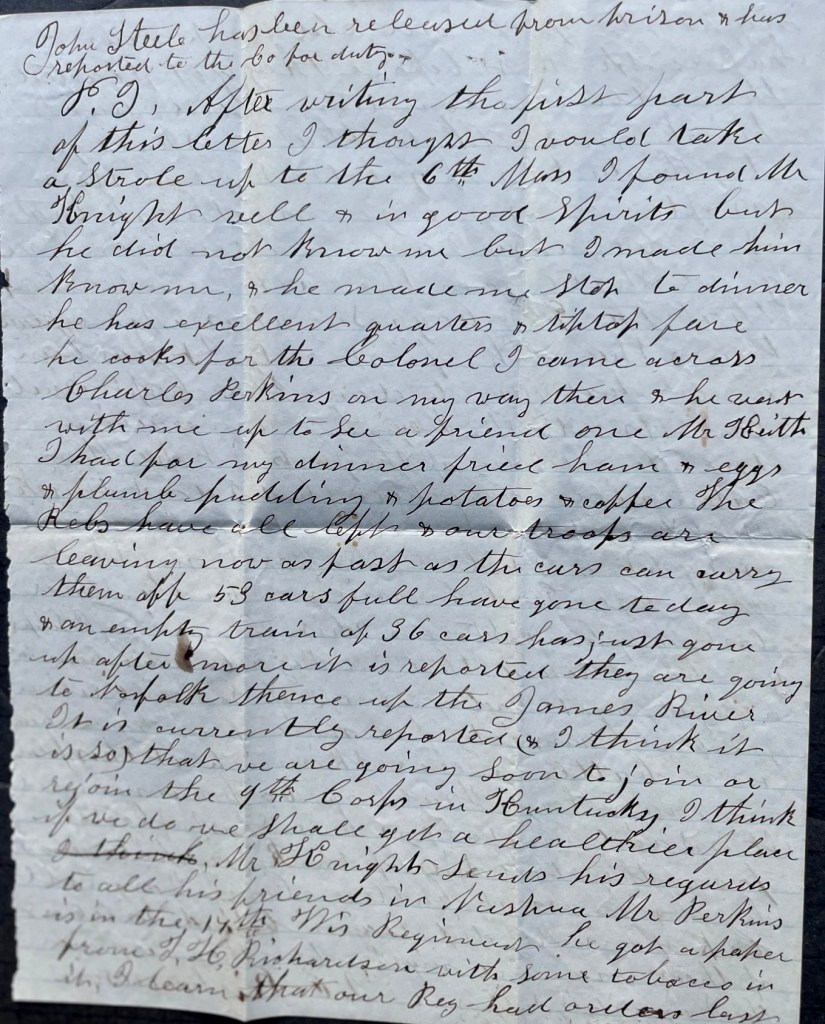 John Steele has been released from prison & has
reported to the Co for duty.
P.S. After writing the first part
of this letter I thought I would take
a strole up to the 6th Mass I found Mr
Knight well & in good spirits but
he did not know me but I made him
know me, & he made me stop to dinner
he has excellent quarters & tiptop fare
he cooks for the Colonel I came across
Charles Perkins on my way there & he went
with me up to see a friend one Mr Keith
I had for my dinner fried ham & eggs
& plumb pudding & potatoes & coffee The
Rebs have all left & our troops are
leaving now as fast as the cars can carry
them off 53 cars full have gone to day
& an empty train of 36 cars has just gone
up after more it is reported they are going
to Norfolk thence up the James River
It is currently reported (& I think it
is so) that we are going soon to join or
rejoin the 9th Corps in Kentucky I think
if we do we shall get a healthier place
I think. Mr Knights sends his regards
to all his friends in Nashua Mr Perkins
is in the Wis Regiment he got a paper
from Richardson with some tobacco in
it, I learn that our Reg had orders last